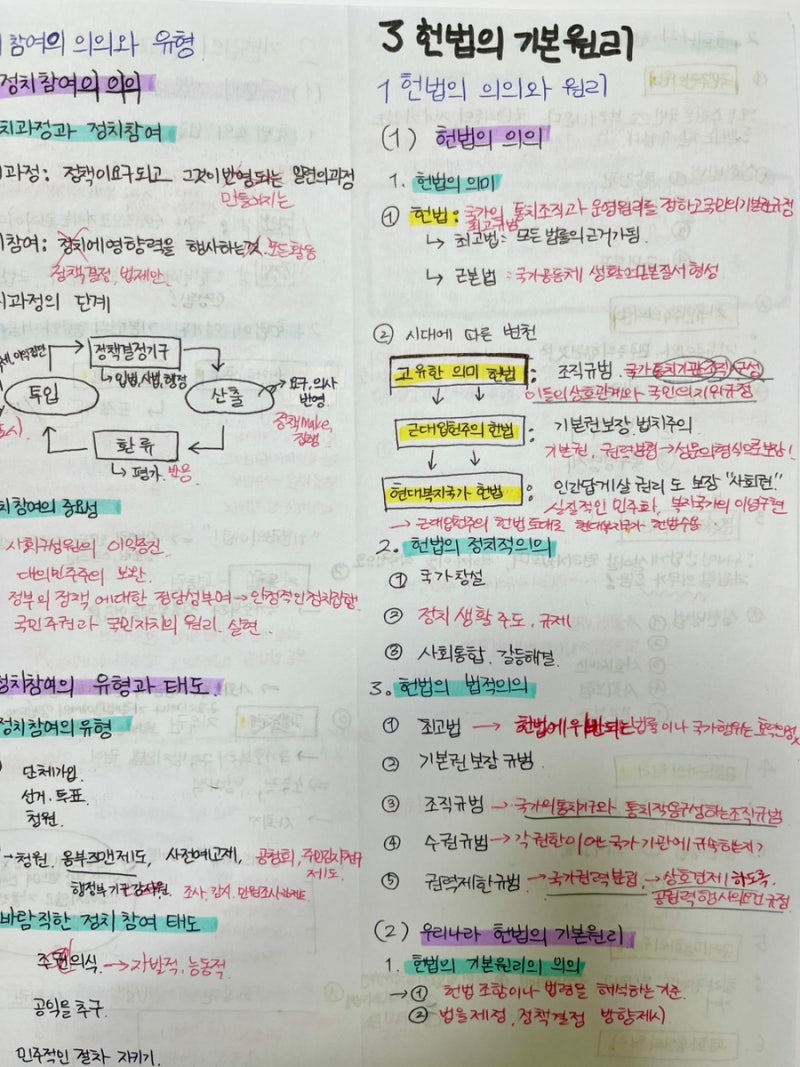 참여의 의의와 유형
정치참여의 의의
치과정과 정치참여
과정: 정책이 요구되고 그것이 반영되는 일련의 과정
만들어지는
참여: 정치에 영향력을 행사하는 것. 모든 활동
정책결정, 법제안
치과정의 단계
정책결정기구
↳ 입법, 사법, 행정
투입
산출
→ 요구, 의사
반영
정책make,
집행
환류
↳ 평가. 반응
치참여의 중요성
사회구성원의 이익증진
대의민주주의 보완.
정부의 정책에 대한 정당성부여 → 안정적인 정치
국민주권과 국민자치의 원리 실현.
정치참여의 유형과 태도.
정치참여의 유형
단체가입.
선거. 투표.
청원.
청원. 옴부즈맨제도, 사전예고제, 공청회,
제도.
행정부 조사, 감시,
바람직한 정치 참여 태도
의식 → 자발적, 능동적
공익을 추구.
민주적인 절차 지키기.
3 헌법의 기본원리
1 헌법의 의의와 원리
(1) 헌법의 의의
1. 헌법의 의미
① 헌법: 국가의 통치조직과 운영원리를 정하고 국민의 기본권 규정
최고규범
↳ 최고법: 모든 법률의 근거가 됨.
↳ 근본법: 국가공동체 생활의 근본질서 형성
② 시대에 따른 변천
고유한 의미 헌법 : 조직규범. 국가통치기관 조직/구성
이들의 상호관계와 국민의 지위규정
근대입헌주의 헌법 : 기본권 보장. 법치주의.
기본권, 권력분립 → 성문의 형식으로 보장!
현대복지국가 헌법 : 인간답게 살 권리도 보장 "사회권"
실질적인 민주화, 복지국가의 이념구현
→ 근대입헌주의 헌법 토대로 현대복지국가 헌법수용
2. 헌법의 정치적의의
① 국가창설
② 정치 생활 주도, 규제
③ 사회통합, 갈등해결.
3. 헌법의 법적의의
① 최고법 → 헌법에 위반되는 법률이나 국가행위는 효력
② 기본권 보장 규범.
③ 조직규범 → 국가의 통치기구와 통치작용구성하는 조직규범
④ 수권규범 → 각 권한이 어느 국가 기관에 귀속하는지?
⑤ 권력제한규범 → 국가권력분립, → 상호견제 하도록.
공권력 행사의 요건 규정
(2) 우리나라 헌법의 기본원리
1. 헌법의 기본원리의 의의
→ ① 헌법 조항이나 법령을 해석하는 기준.
② 법을 제정, 정책결정 방향제시